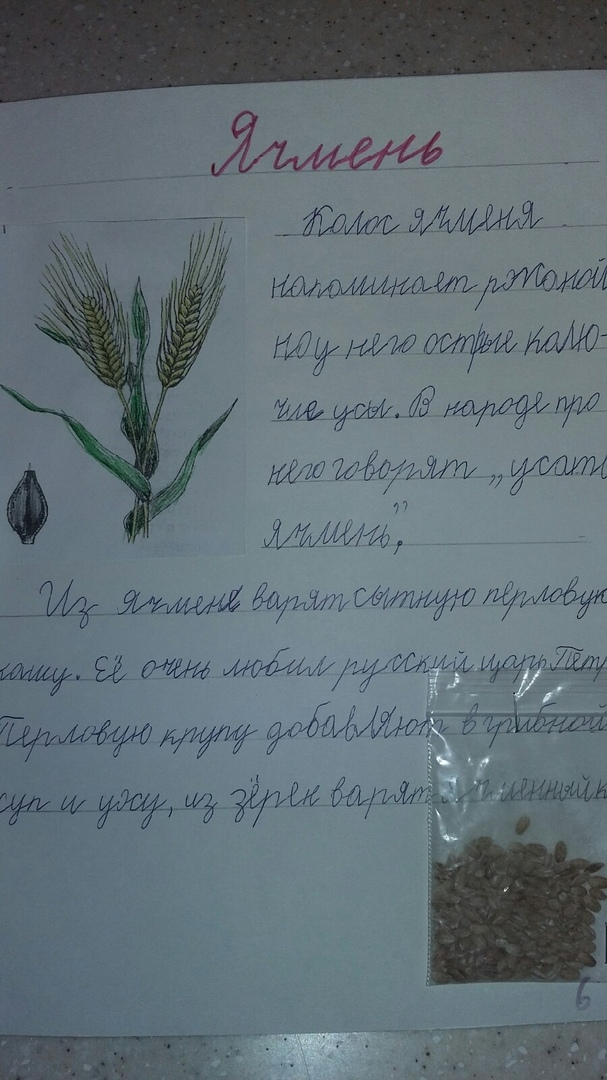 Ячмень
Колос ячменя
напоминает ржаной
но у него острые колю-
чие усы. В народе про
него говорят „усатый
ячмень”.
Из ячменя варят сытную перловую
кашу. Её очень любил русский царь Пётр
Перловую крупу добавляют в грибной
суп и уху, из зёрен варят ячменный к
6